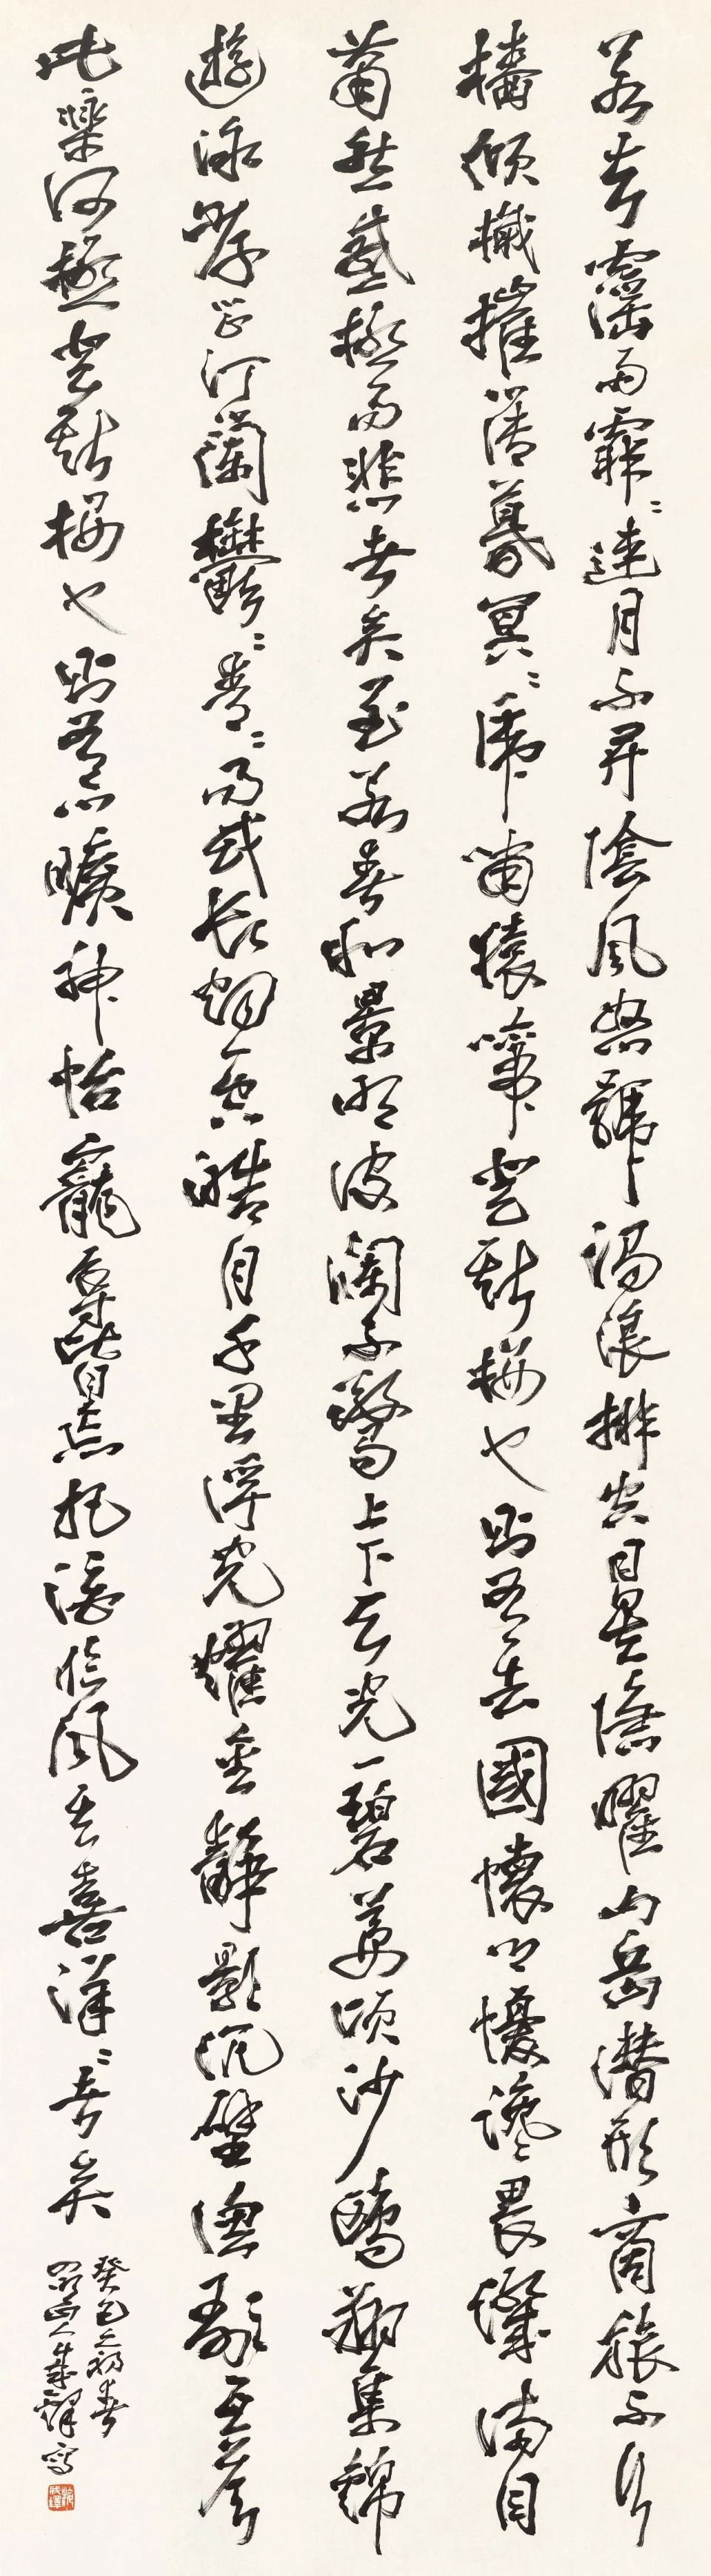 若夫霪雨霏〻連月不开陰風怒號濁浪排空日星隱曜山岳潛形商旅不行
檣傾檝摧薄暮冥〻虎嘯猿啼登斯樓也則有去國懷鄉懮讒畏譏滿目
蕭然感極而悲者矣至若春和景明波瀾不驚上下天光一碧萬頃沙鷗翔集錦
遊泳岸芷汀蘭鬱〻青〻而或長烟一空皓月千里浮光耀金靜影沉璧漁歌互答
此樂何極登斯樓也則有心曠神怡寵辱皆忘把酒臨風其喜洋〻者矣
癸巳之初春
山人